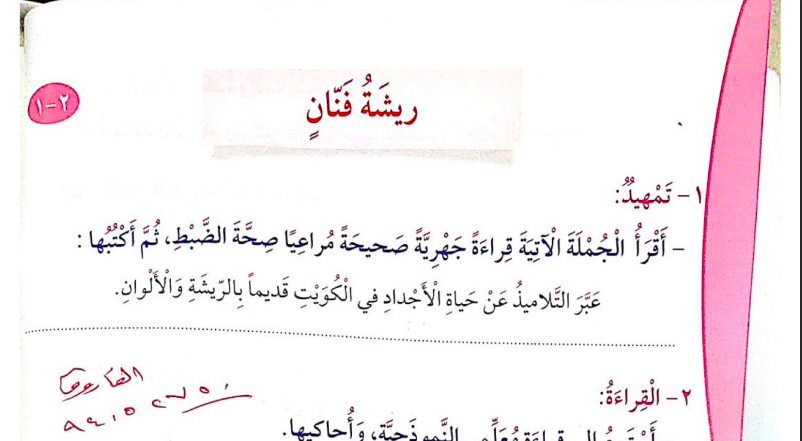 رِيشَةُ فَنّانٍ
٢-١
١- تَمْهِيدٌ:
- أَقْرَأُ الْجُمْلَةَ الْآتِيَةَ قِراءَةً جَهْرِيَّةً صَحيحَةً مُراعِيًا صِحَّةَ الضَّبْطِ، ثُمَّ أَكْتُبُها :
عَبَّرَ التَّلاميذُ عَنْ حَياةِ الْأَجْدادِ في الْكُوَيْتِ قَديماً بِالرّيشَةِ وَالْأَلْوانِ.
٢- الْقِراءَةُ:
قِراءَةِ مُعَلِّمي النَّموذَجِيَّةِ، وَأُحاكيها.